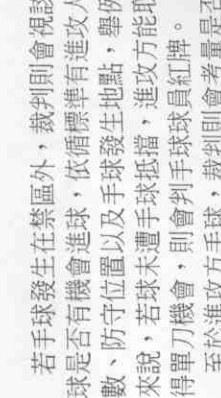 若手球發生在禁區外，裁判則會視該
球是否有機會進球，依循標準有進攻人
數、防守位置以及手球發生地點，舉例
來說，若球未遭手球抵擋，進攻方能取
得單刀機會，則會判手球球員紅牌。
至於進攻方手球，裁判則會考量是否